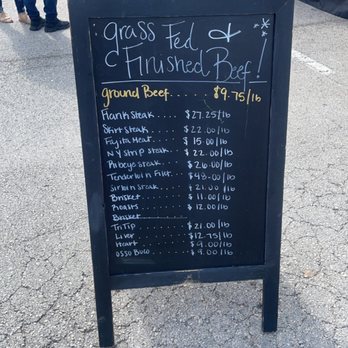 grass Fed
& Finished Beef!
ground Beef..... $9.75/lb
Flank Steak.... $27.25/lb
Skirt steak.... $22.00/lb
Fajita Meat... $15.00/lb
NY strip steak.. $22.00/lb
Ribeye steak... $26.00/lb
Tenderloin Filet.. $48.00/lb
Sirloin steak... $21.00/lb
Brisket..... $11.00/lb
Roasts..... $12.00/lb
Brisket
Tri Tip..... $21.00/lb
Liver..... $12.75/lb
Heart..... $9.00/lb
OSSO BUCO... $9.00/lb